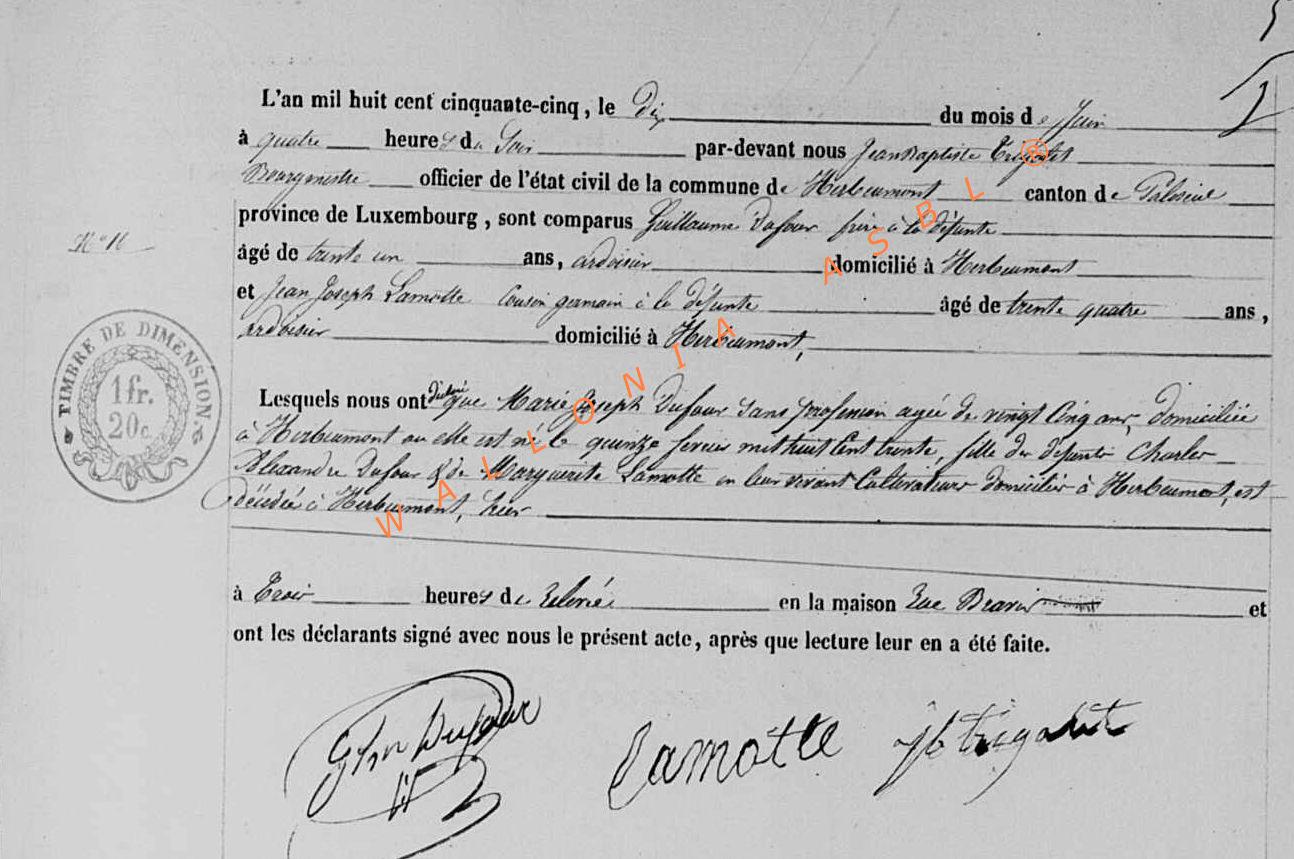 L'an mil huit cent cinquante-cinq, le Dix du mois de Juin
à quatre heures du Soir par-devant nous JeanBaptiste Trigalet
Bourgmestre officier de l'état civil de la commune de Herbeumont canton de Paliseul
province de Luxembourg, sont comparus Guillaume Dufour frère à la défunte
N° 16
âgé de trente un ans, ardoisier domicilié à Herbeumont
et Jean Joseph Lamotte Cousin germain à la défunte âgé de trente quatre ans,
ardoisier domicilié à Herbeumont,
TIMBRE DE DIMENSION
1 fr.
20 c.
Lesquels nous ont déclaré que Marie Joseph Dufour Sans profession agée de vingt Cinq ans, domiciliée
à Herbeumont ou elle est né le quinze mil huit Cent trente, fille des défunts Charles
Alexandre Dufour & de Marguerite Lamotte en leur vivant Cultivateurs domiciliés à Herbeumont, est
décédée à Herbeumont, hier
à Trois heures de Relevée en la maison Rue et
ont les déclarants signé avec nous le présent acte, après que lecture leur en a été faite.
Dufour Lamotte Jb trigalet
WALLONIA ASBL ®